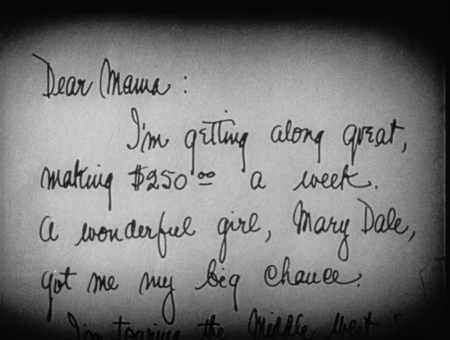 Dear Mama:
I'm getting along great,
making $250⁰⁰ a week.
A wonderful girl, Mary Dale,
got me my big chance.
I'm touring the Middle West